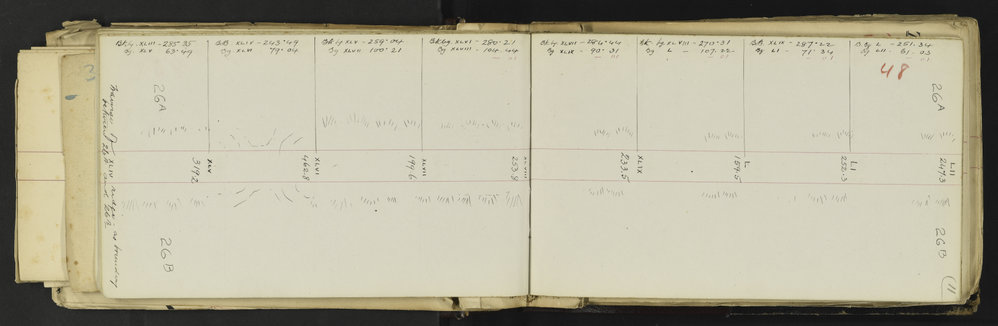 Bk.g. XLIII - 285.35
Bg. XLV 63.49
B.B. XLIV - 243.49
Bg. XLVI 79.04
Bk.g. XLV - 259.04
Bg XLVII 100.21
Bk.bg. XLVI - 280.21
Bg XLVIII - 104.44
Bk.g. XLVII - 284.44
Bg. XLIX - 90.31
Bk. bg. XLVIII - 270.31
Bg L - 107.22
B.g. XLIX - 287.22
Bg LI - 71.34
B.Bg L - 251.34
Bg LII - 61.03
48
26A
26A
XLV
319.2
XLVI
460.8
XLVII
199.6
XLVIII
253.9
XLIX
233.5
L
159.5
LI
252.3
LII
247.3
XLIV
between 26B and 26A
26B
26B
11